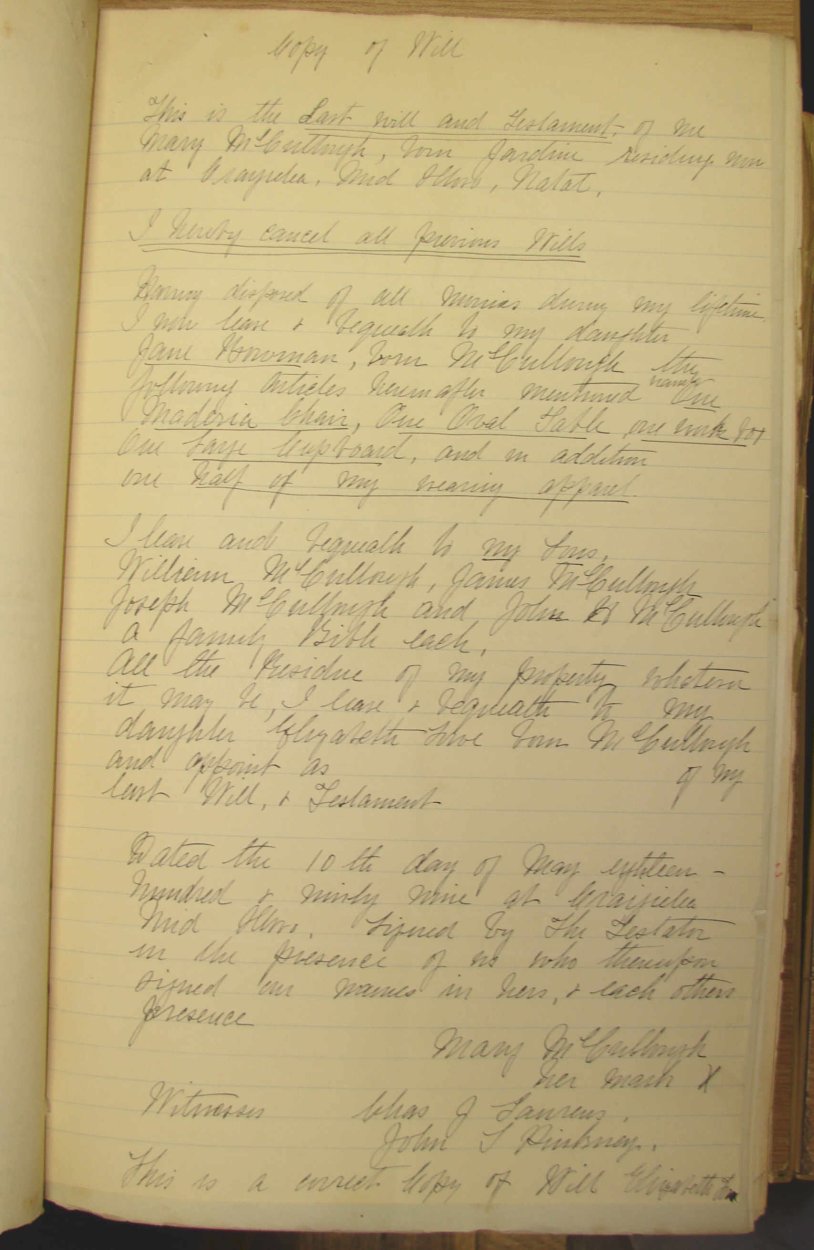 Copy of Will
This is the Last will and Testament of me
Mary McCullough, born Jardine residing now
at Craigielea, Mid Illovo, Natal.
I hereby cancel all previous Wills
Having disposed of all monies during my lifetime
I now leave & bequeath to my daughter
Jane Bowman, born McCullough the
following Articles hereinafter mentioned One
Maderia Chair, One Oval Table one work box
One Large Cupboard, and in addition
one half of my wearing apparel.
I leave and bequeath to my Sons,
William McCullough, James McCullough
Joseph McCullough and John H McCullough
a family Bible each.
All the Residue of my property whatever
it may be, I leave & bequeath to my
daughter Elizabeth born McCullough
and appoint as of my
last Will, & Testament
Dated the 10th day of May eighteen -
hundred & ninety nine at Craigielea
Mid Illovo. Signed by The Testator
in the presence of us who thereupon
signed our names in hers, & each others
presence
Mary McCullough
her mark X
Witnesses Chas J Laurens.
John S Pinkney.
This is a correct Copy of Will Elizabeth